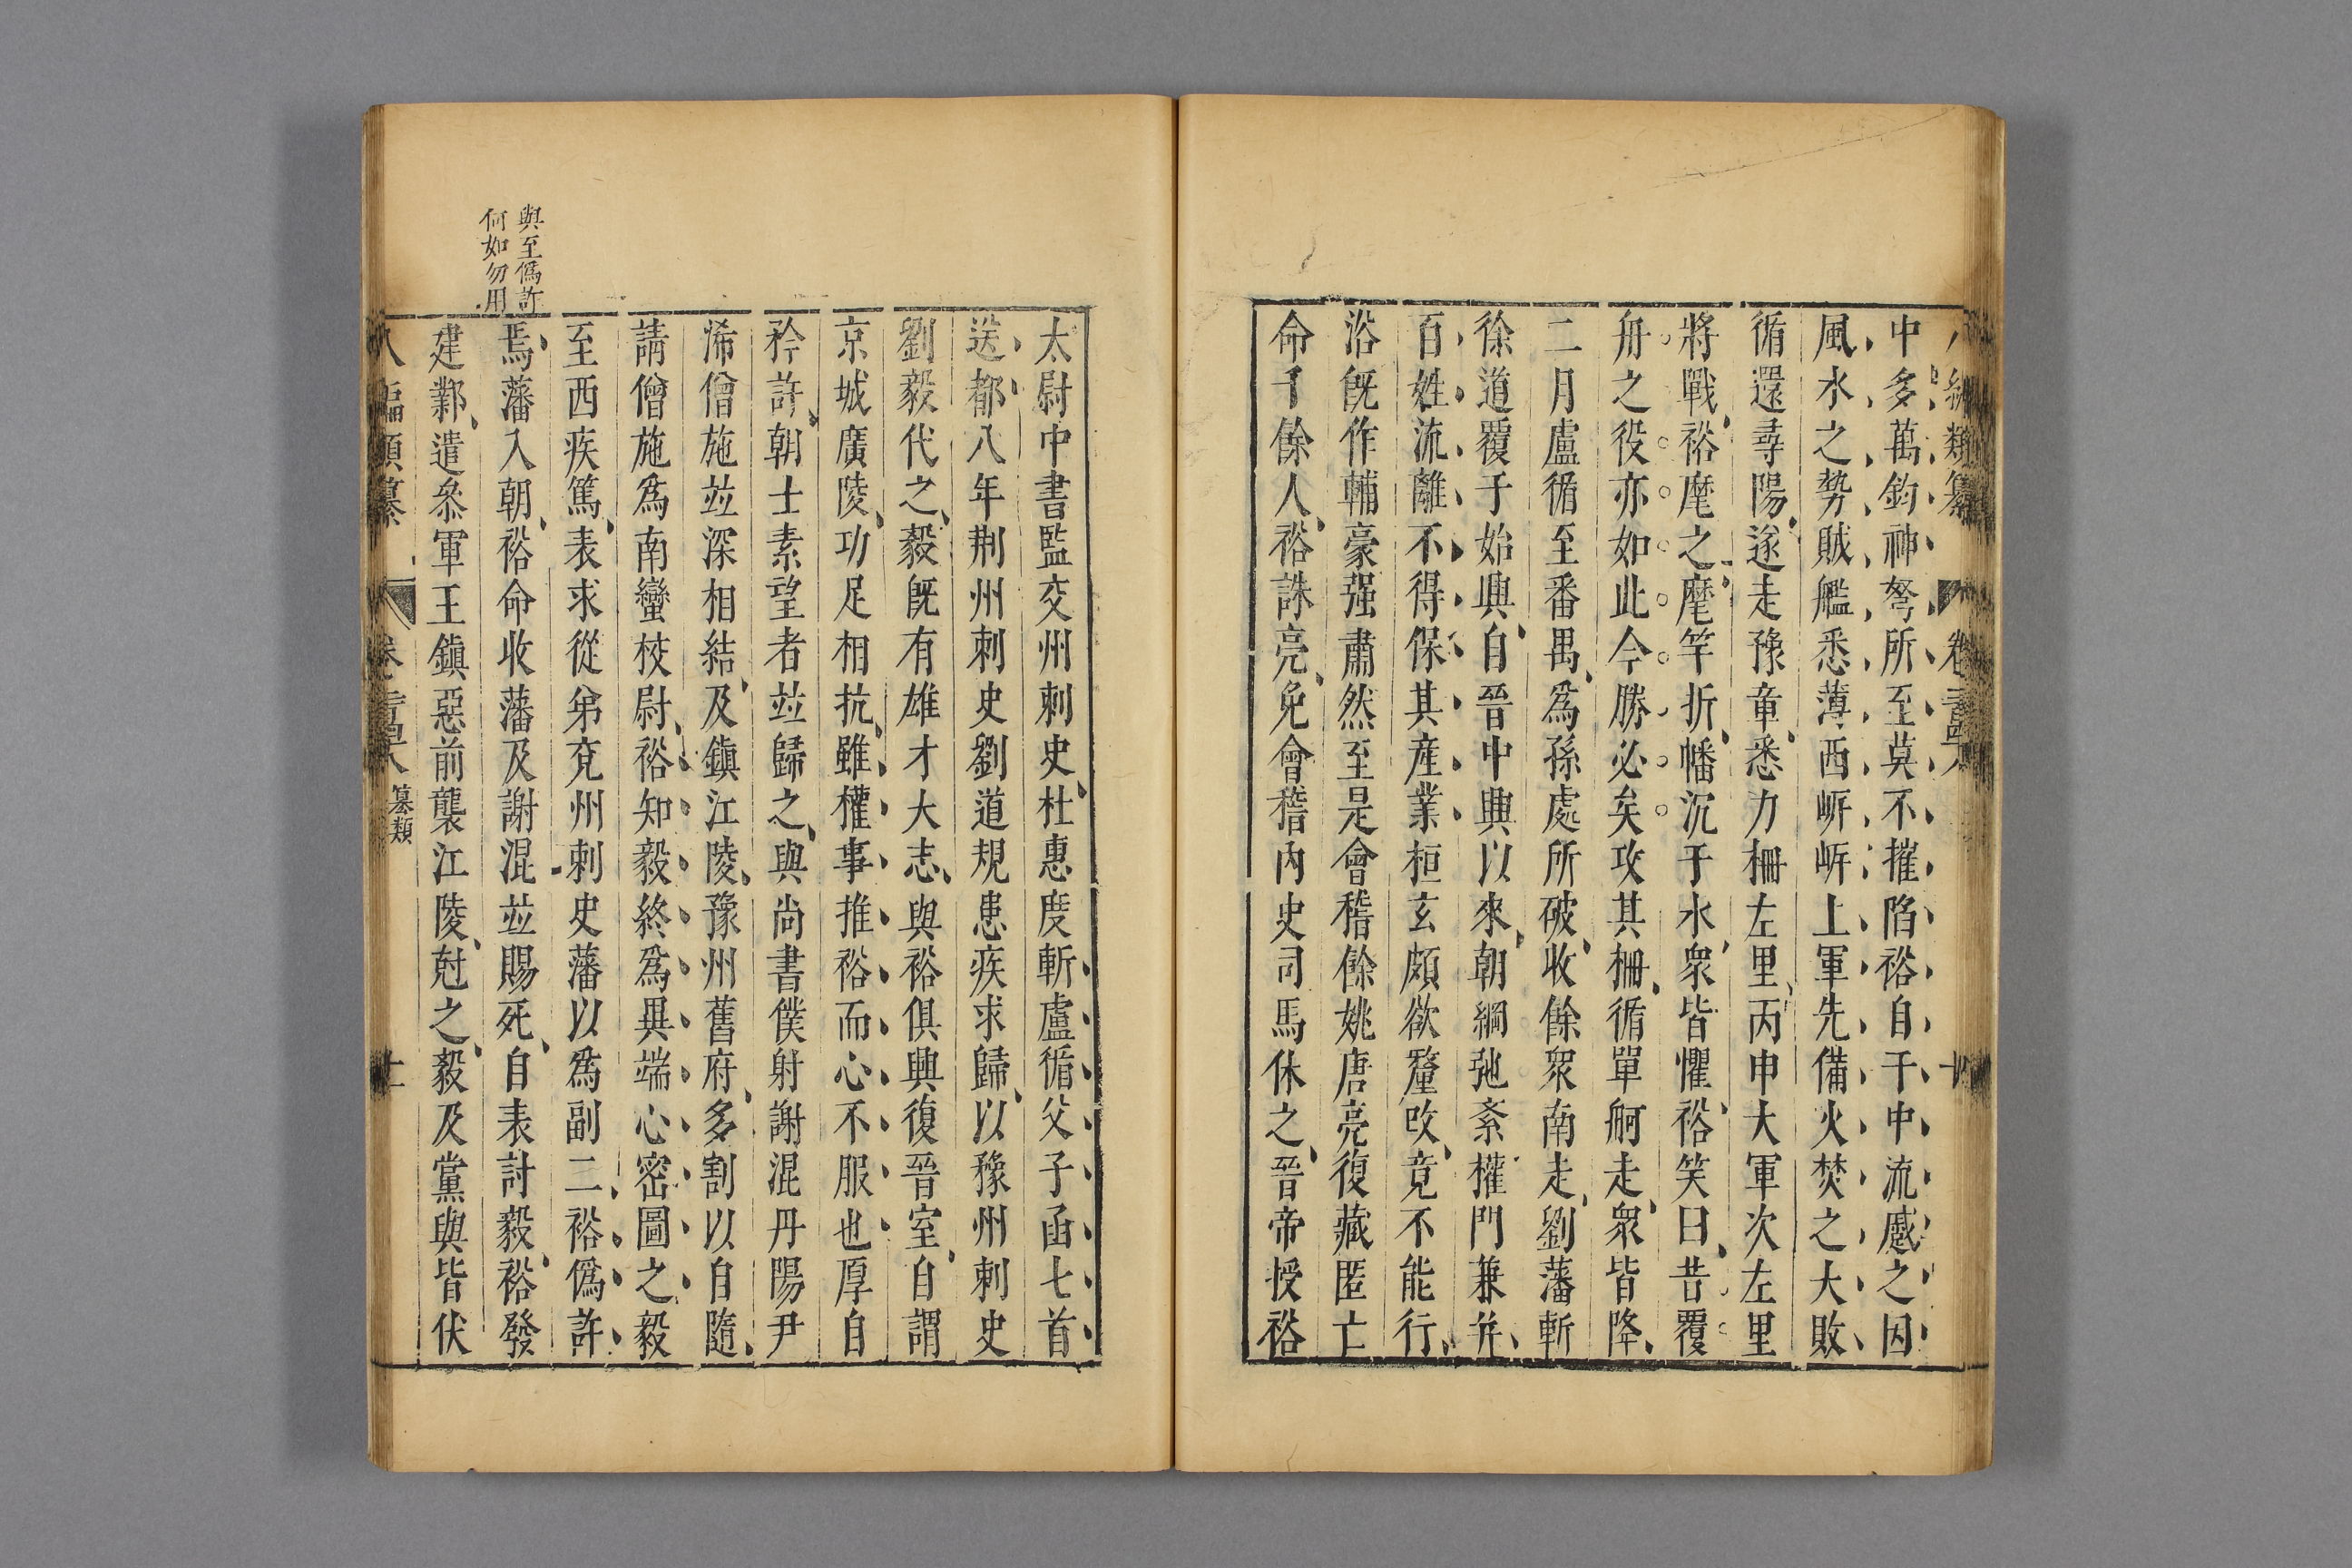 中多萬鈞神弩所至莫不摧陷裕自于中流蹙之因
風水之勢賊艦悉薄西岍岍上軍先備火焚之大敗
循還尋陽遂走豫章悉力柵左里丙申大軍次左里
將戰裕麾之麾竿折幡沉于水衆皆懼裕笑曰昔覆
舟之役亦如此今勝必矣攻其柵循單舸走衆皆降
二月盧循至番禺爲孫處所破收餘衆南走劉藩斬
徐道覆于始興自晉中興以來朝綱弛紊權門兼并
百姓流離不得保其產業桓玄頗欲釐改竟不能行
浴旣作輔豪强肅然至是會稽餘姚唐亮復藏匿亡
命千餘人裕誅亮免會稽內史司馬休之晉帝授裕
太尉中書監交州刺史杜惠度斬盧循父子函七首
送都八年荆州刺史劉道規患疾求歸以豫州刺史
劉毅代之毅旣有雄才大志與裕俱興復晉室自謂
京城廣陵功足相抗雖權事推裕而心不服也厚自
矜許朝士素望者竝歸之與尚書僕射謝混丹陽尹
悕僧施竝深相結及鎭江陵豫州舊府多割以自隨
請僧施爲南蠻校尉裕知毅終爲異端心密圖之毅
至西疾篤表求從弟兗州刺史藩以爲副二裕僞許
與至僞許
何如勿用
焉藩入朝裕命收藩及謝混竝賜死自表討毅裕發
建鄴遣叅軍王鎭惡前襲江陵尅之毅及黨與皆伏
八編類纂
纂類
十一